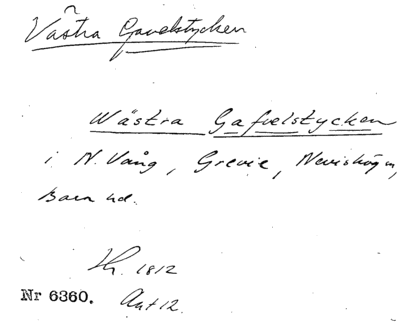 Västra Gavelstycken
Wästra Gafvelstycken
i N. Vång, Grevie,
Bara hd.
Lh. 1812
Nr 6360. Akt 12.